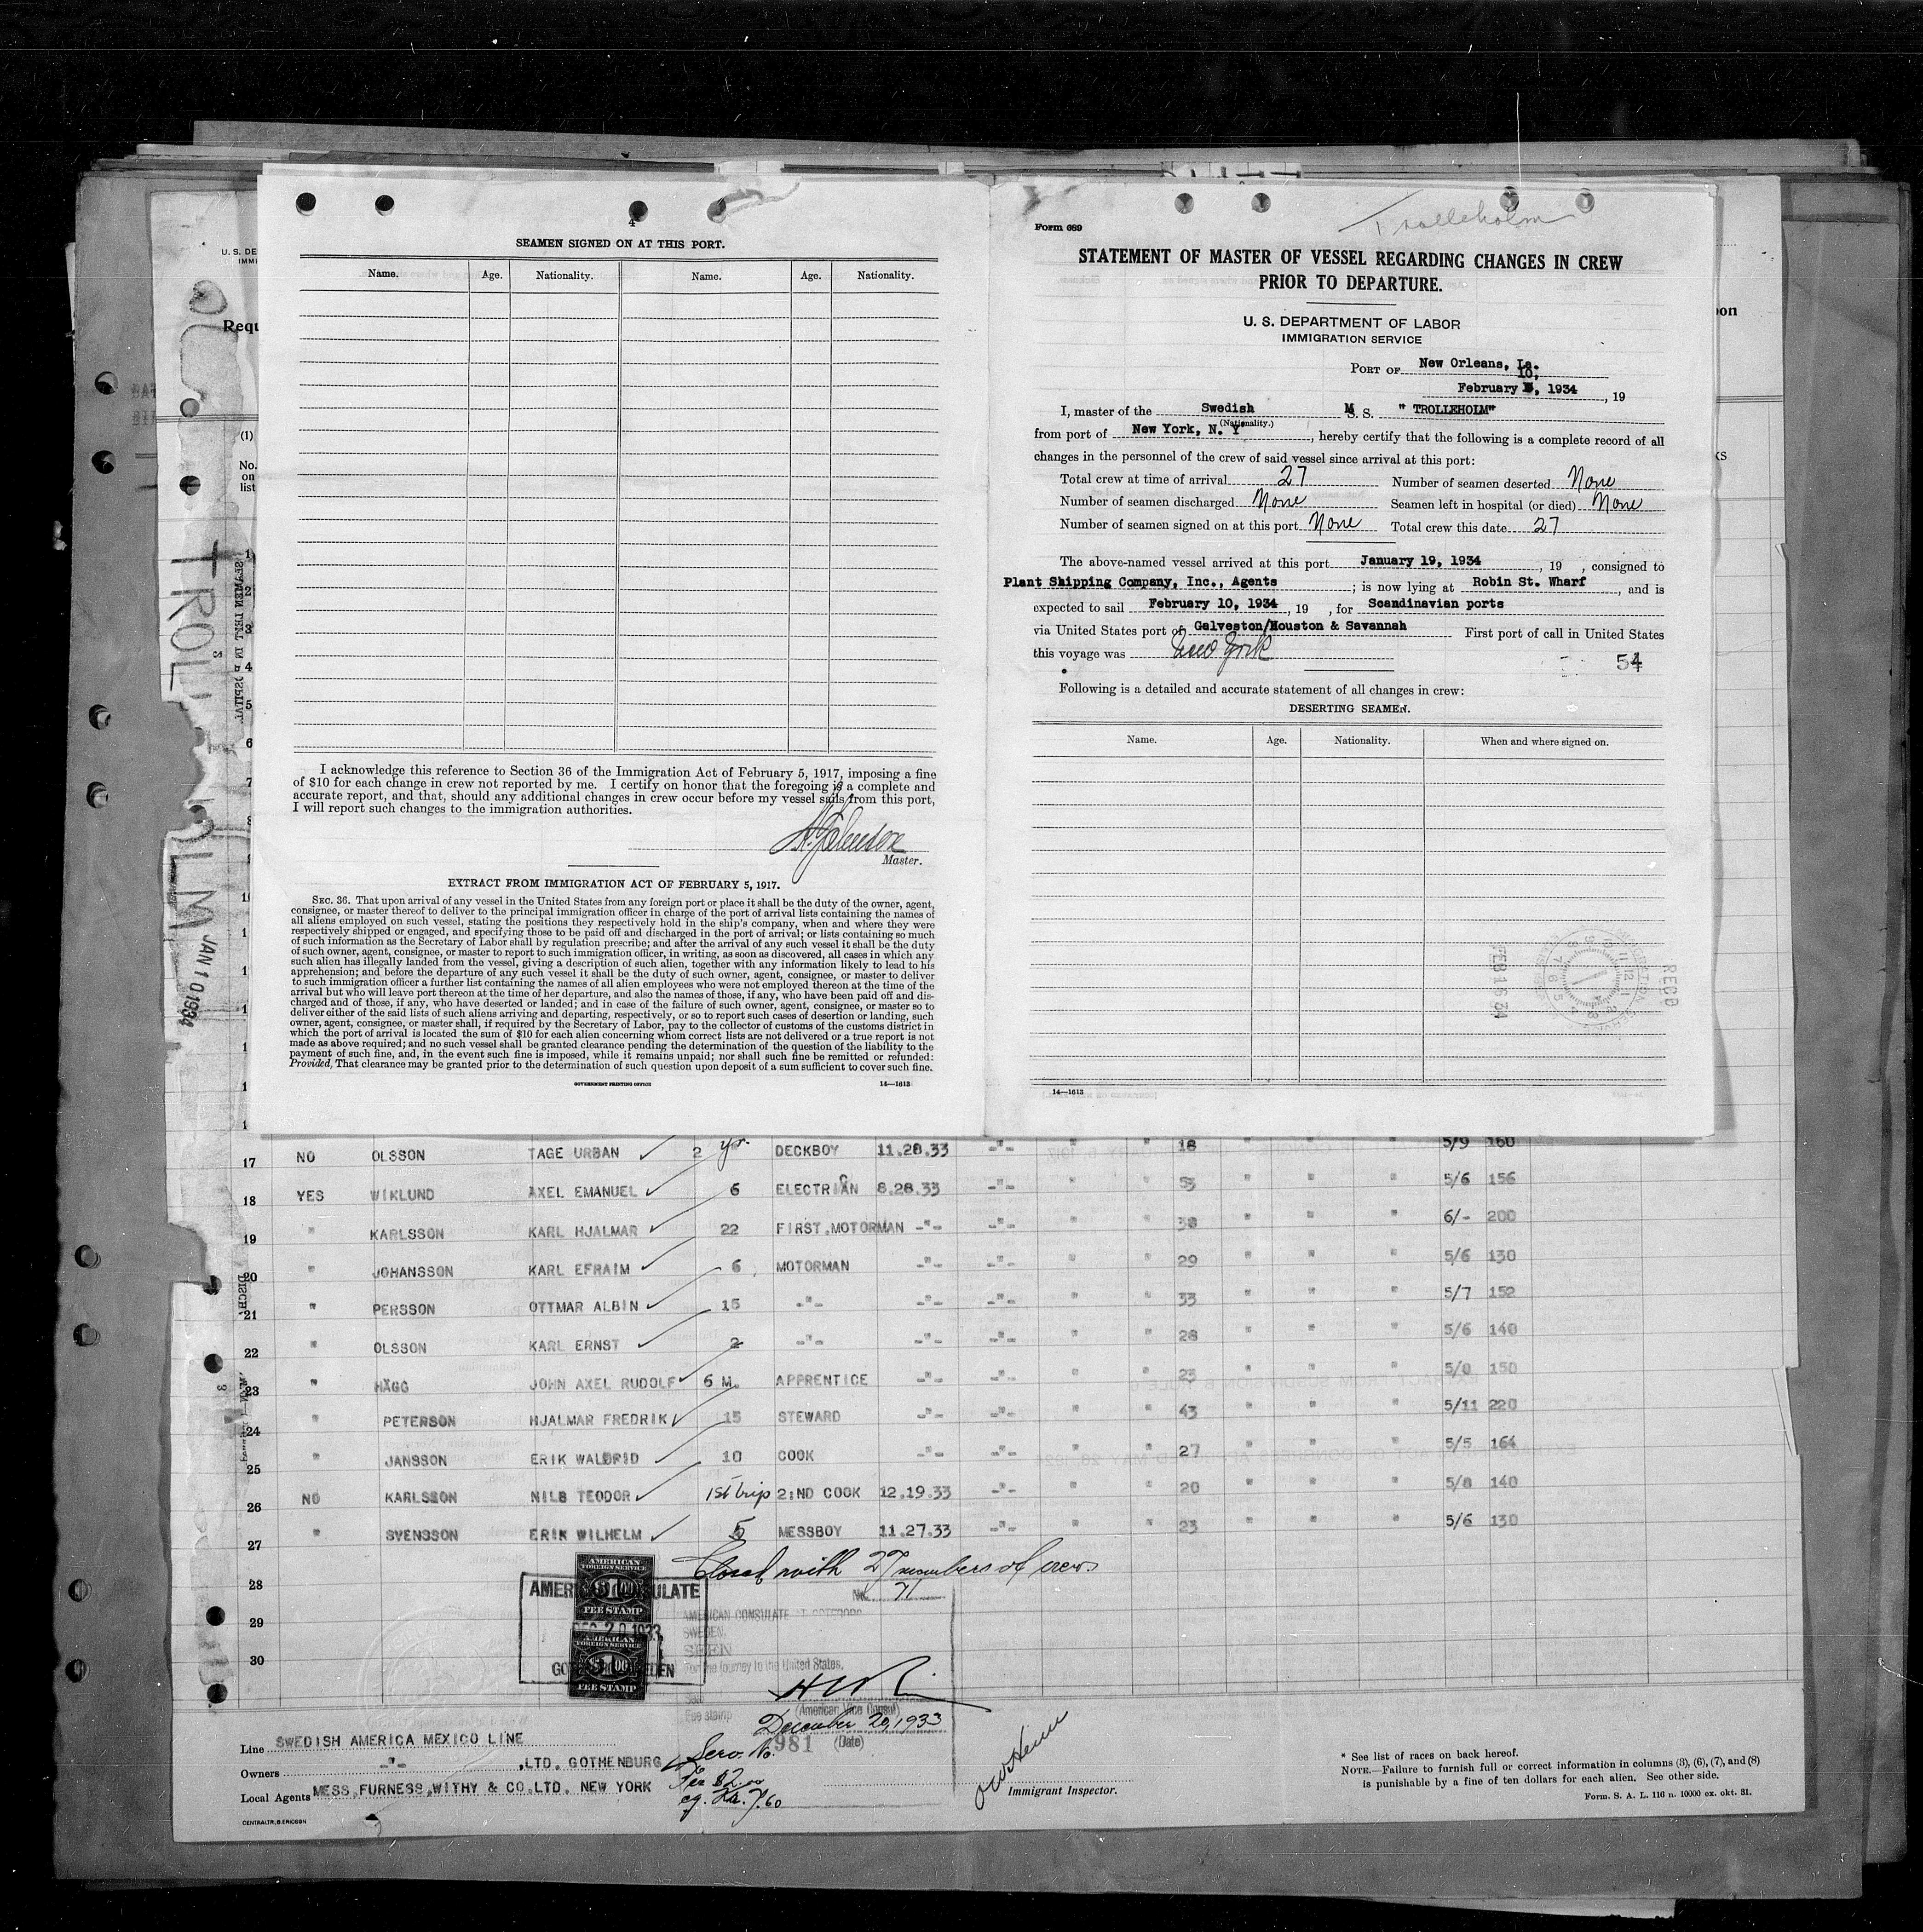 4
SEAMEN SIGNED ON AT THIS PORT.
Name. Age. Nationality. Name. Age. Nationality.
I acknowledge this reference to Section 36 of the Immigration Act of February 5, 1917, imposing a fine
of $10 for each change in crew not reported by me. I certify on honor that the foregoing is a complete and
accurate report, and that, should any additional changes in crew occur before my vessel sails from this port,
I will report such changes to the immigration authorities.
Master.
EXTRACT FROM IMMIGRATION ACT OF FEBRUARY 5, 1917.
SEC. 36. That upon arrival of any vessel in the United States from any foreign port or place it shall be the duty of the owner, agent,
consignee, or master thereof to deliver to the principal immigration officer in charge of the port of arrival lists containing the names of
all aliens employed on such vessel, stating the positions they respectively hold in the ship's company, when and where they were
respectively shipped or engaged, and specifying those to be paid off and discharged in the port of arrival; or lists containing so much
of such information as the Secretary of Labor shall by regulation prescribe; and after the arrival of any such vessel it shall be the duty
of such owner, agent, consignee, or master to report to such immigration officer, in writing, as soon as discovered, all cases in which any
such alien has illegally landed from the vessel, giving a description of such alien, together with any information likely to lead to his
apprehension; and before the departure of any such vessel it shall be the duty of such owner, agent, consignee, or master to deliver
to such immigration officer a further list containing the names of all alien employees who were not employed thereon at the time of the
arrival but who will leave port thereon at the time of her departure, and also the names of those, if any, who have been paid off and dis-
charged and of those, if any, who have deserted or landed; and in case of the failure of such owner, agent, consignee, or master so to
deliver either of the said lists of such aliens arriving and departing, respectively, or so to report such cases of desertion or landing, such
owner, agent, consignee, or master shall, if required by the Secretary of Labor, pay to the collector of customs of the customs district in
which the port of arrival is located the sum of $10 for each alien concerning whom correct lists are not delivered or a true report is not
made as above required; and no such vessel shall be granted clearance pending the determination of the question of the liability to the
payment of such fine, and, in the event such fine is imposed, while it remains unpaid; nor shall such fine be remitted or refunded:
Provided, That clearance may be granted prior to the determination of such question upon deposit of a sum sufficient to cover such fine.
GOVERNMENT PRINTING OFFICE 14—1613
Trolleholm
Form 689
STATEMENT OF MASTER OF VESSEL REGARDING CHANGES IN CREW
PRIOR TO DEPARTURE.
U. S. DEPARTMENT OF LABOR
IMMIGRATION SERVICE
PORT OF New Orleans, La.
February 10, 1934, 19
I, master of the Swedish M S. S. " TROLLEHOLM"
(Nationality.)
from port of New York, N. Y, hereby certify that the following is a complete record of all
changes in the personnel of the crew of said vessel since arrival at this port:
Total crew at time of arrival 27 Number of seamen deserted None
Number of seamen discharged None Seamen left in hospital (or died) None
Number of seamen signed on at this port None Total crew this date 27
The above-named vessel arrived at this port January 19, 1934, 19 , consigned to
Plant Shipping Company, Inc., Agents; is now lying at Robin St. Wharf, and is
expected to sail February 10, 1934, 19 , for Scandinavian ports
via United States port of Galveston/Houston & Savannah First port of call in United States
this voyage was New York
54
Following is a detailed and accurate statement of all changes in crew:
DESERTING SEAMEN.
Name. Age. Nationality. When and where signed on.
REC'D
FEB 13 '34
14—1613
U. S. DE
IMMI
Requ
(1)
No.
on
list
TROLL
OLM
JAN 10 1934
1
2
3
4
5
6
7
8
17 NO OLSSON TAGE URBAN ✓ 2 yr. DECKBOY 11.28.33 -"- " " 18 " " " 5/9 160
18 YES WIKLUND AXEL EMANUEL ✓ 6 ELECTRICAN 8.28.33 -"- " " 53 " " " 5/6 156
19 " KARLSSON KARL HJALMAR ✓ 22 FIRST.MOTORMAN -"- -"- " " 38 " " " 6/- 200
20 " JOHANSSON KARL EFRAIM ✓ 6 MOTORMAN -"- -"- " " 29 " " " 5/6 130
21 " PERSSON OTTMAR ALBIN ✓ 15 -"- -"- -"- " " 33 " " " 5/7 152
22 " OLSSON KARL ERNST ✓ 2 -"- -"- -"- " " 28 " " " 5/6 140
23 " HÄGG JOHN AXEL RUDOLF ✓ 6 M. APPRENTICE -"- -"- " " 23 " " " 5/8 150
24 " PETERSON HJALMAR FREDRIK ✓ 15 STEWARD -"- -"- " " 43 " " " 5/11 220
25 " JANSSON ERIK WALDFRID ✓ 10 COOK -"- -"- " " 27 " " " 5/5 164
26 NO KARLSSON NILS TEODOR ✓ 1st trip 2:ND COOK 12.19.33 -"- " " 20 " " " 5/8 140
27 " SVENSSON ERIK WILHELM ✓ 5 MESSBOY 11.27.33 -"- " " 23 " " " 5/6 130
Closed with 27 members of crew.
28
29
30
No. 71
AMERICAN CONSULATE
DEC 20 1933
GOTHENBURG, SWEDEN
AMERICAN
FOREIGN SERVICE
$1.00
FEE STAMP
AMERICAN
FOREIGN SERVICE
$1.00
FEE STAMP
AMERICAN CONSULATE AT GOTEBORG
SWEDEN.
SEEN
For the journey to the United States,
Seal
(American Vice Consul)
Fee stamp
December 20, 1933
(Date)
Serv. No. 981
Fee $2.00
eq. Kr. 7.60
Line SWEDISH AMERICA MEXICO LINE
Owners -"- ,LTD. GOTHENBURG
Local Agents MESS. FURNESS, WITHY & CO.LTD. NEW YORK
CENTRALTR, G. ERICSON
Immigrant Inspector.
* See list of races on back hereof.
NOTE.—Failure to furnish full or correct information in columns (3), (6), (7), and (8)
is punishable by a fine of ten dollars for each alien. See other side.
Form. S. A. L. 116 n. 10000 ex. okt. 31.